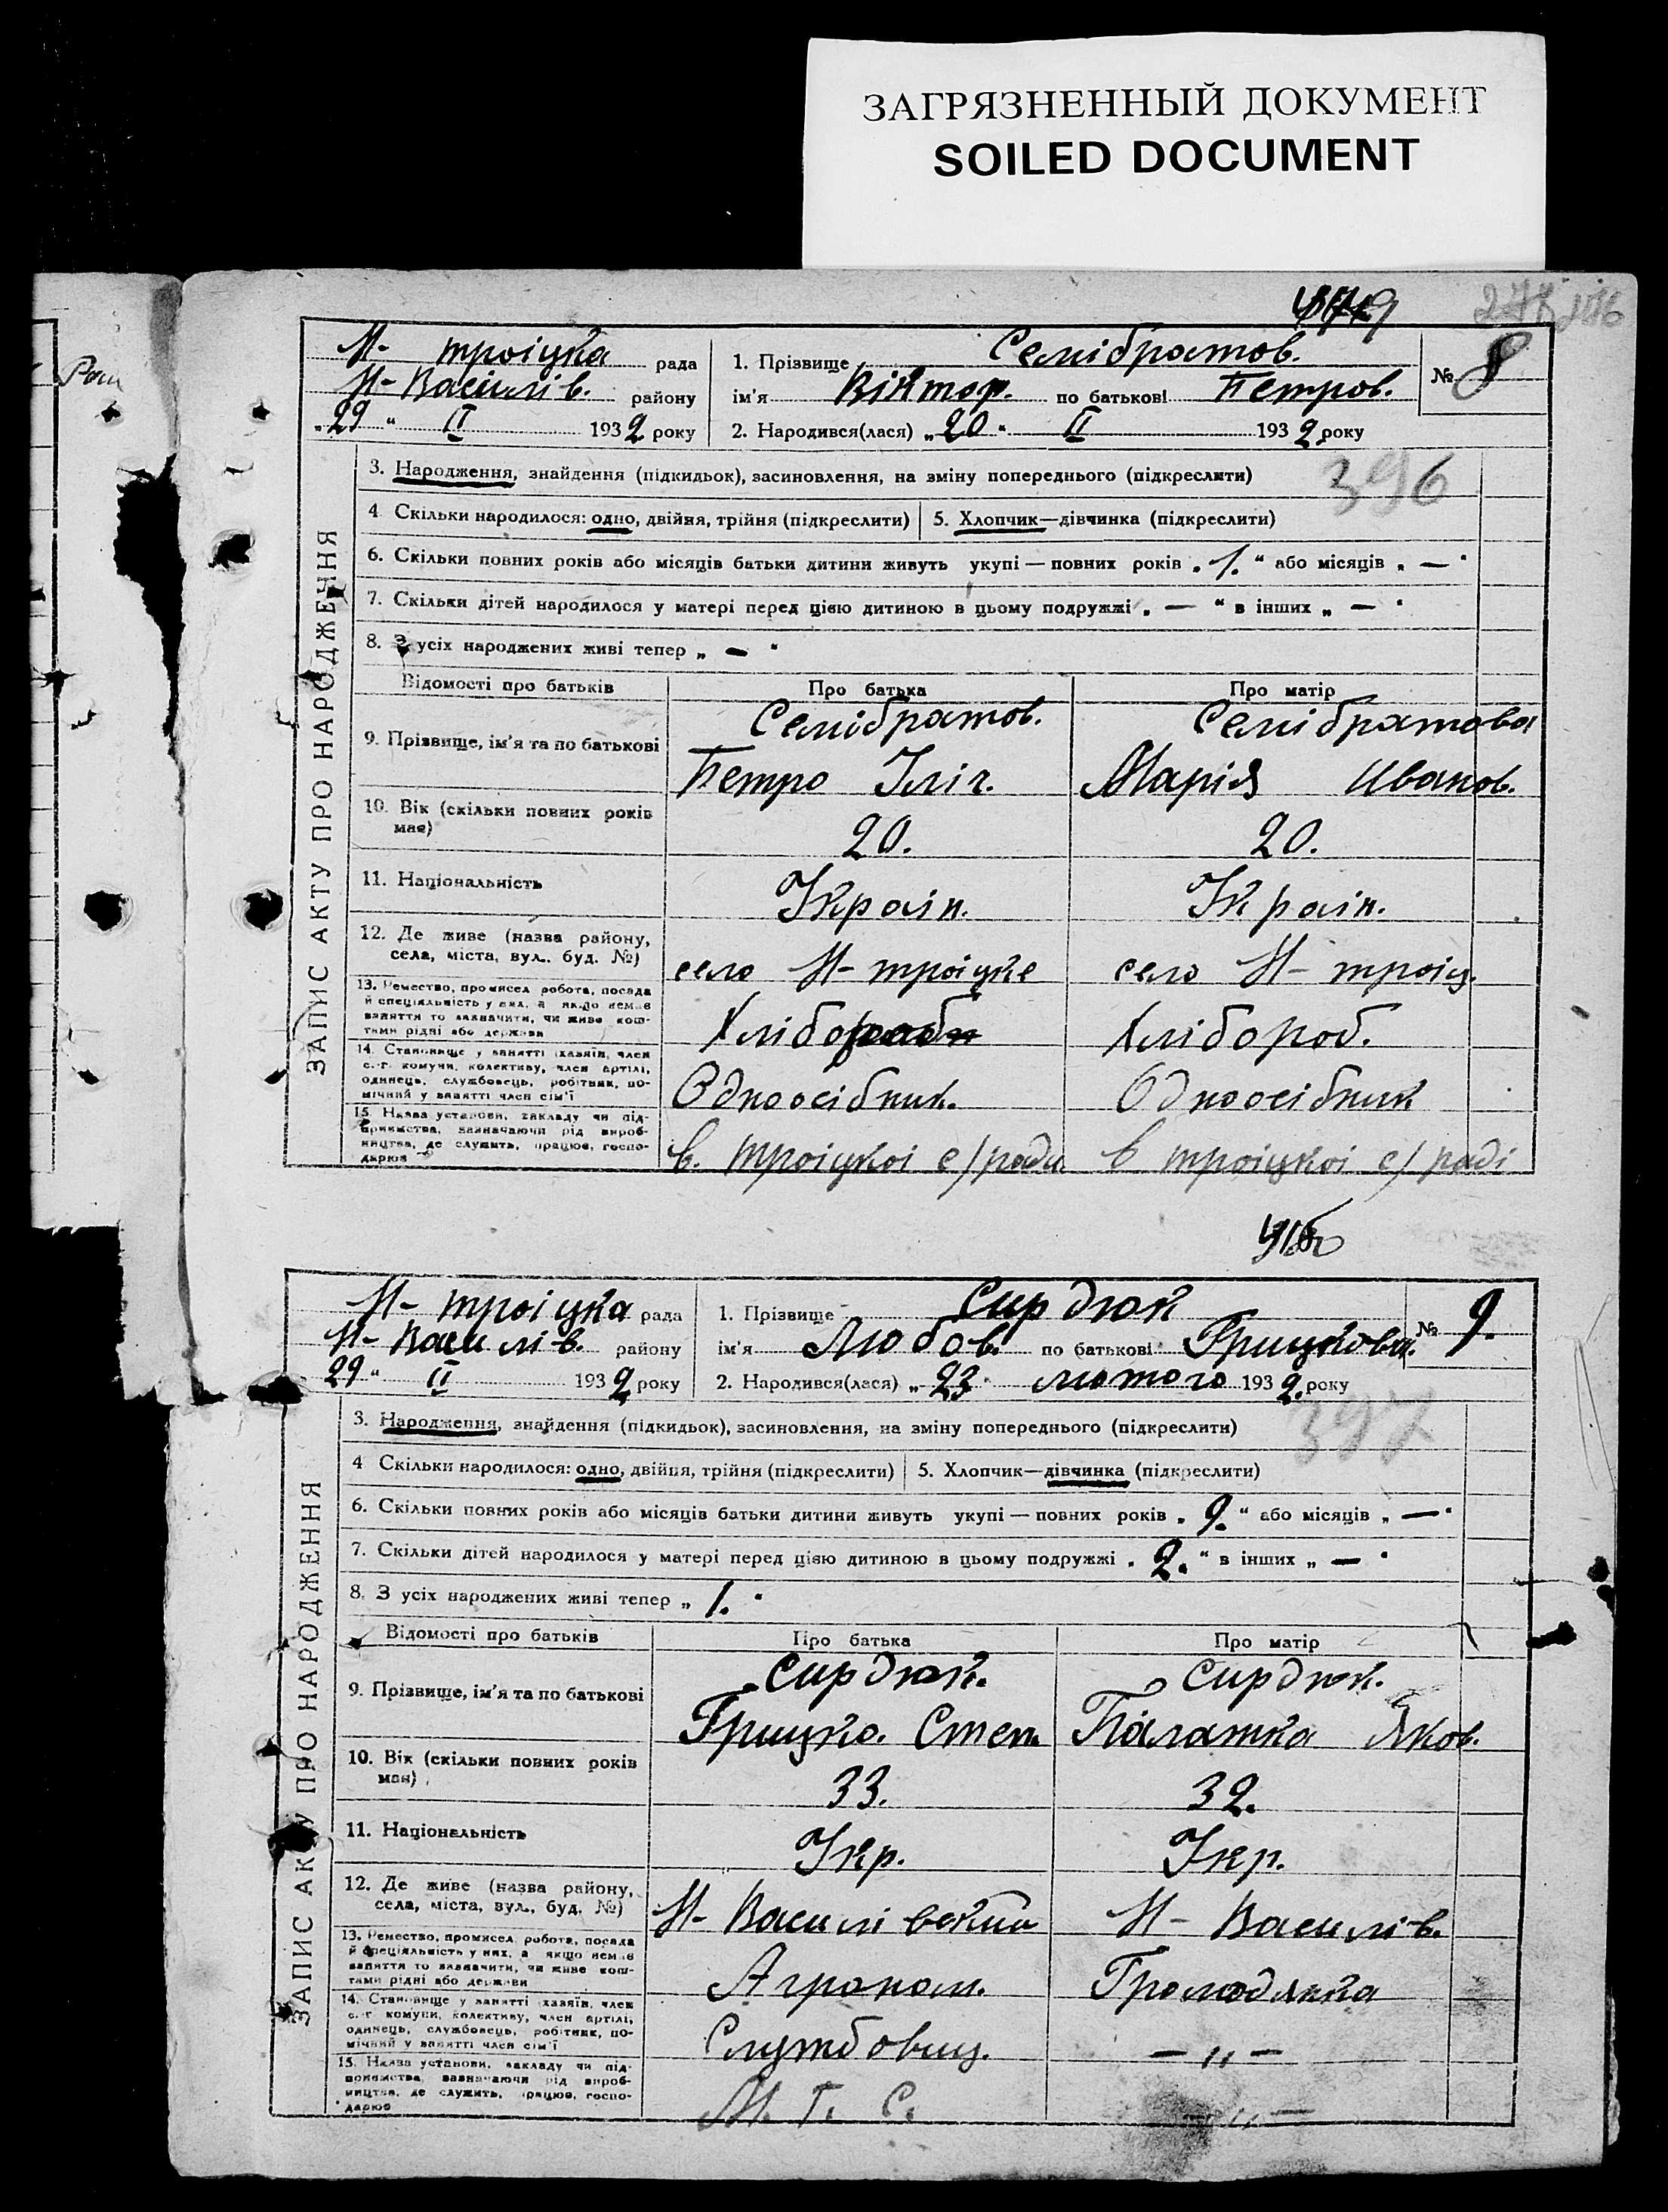 ЗАГРЯЗНЕННЫЙ ДОКУМЕНТ
SOILED DOCUMENT
Н- троіцка рада
Н- Василів. району
"29" II 1932 року
1. Прізвище Семібратов. № 8
ім'я Віктор. по батькові Петров.
2. Народився(лася) "20" II 1932 року
396
ЗАПИС АКТУ ПРО НАРОДЖЕННЯ
3. Народження, знайдення (підкидьок), засиновлення, на зміну попереднього (підкреслити)
4 Скільки народилося: одно, двійня, трійня (підкреслити) 5. Хлопчик—дівчинка (підкреслити)
6. Скільки повних років або місяців батьки дитини живуть укупі — повних років „1.“ або місяців „—“
7. Скільки дітей народилося у матері перед цією дитиною в цьому подружжі „—“ в інших „—“
8. З усіх народжених живі тепер „—“
Відомості про батьків Про батька Про матір
9. Прізвище, ім'я та по батькові
Семібратов. Семібратова
Петро Іліч. Марія Иванов.
10. Вік (скільки повних років має)
20. 20.
11. Національність
Україн. Україн.
12. Де живе (назва району, села, міста, вул., буд. №)
село Н- троіцке село Н- троіц.
13. Ремество, промисел, робота, посада й спеціяльність у них, а якщо немає заняття то зазначити, чи живе коштами рідні або держави
Хлібороб. Хлібороб.
14. Становище у занятті хазяїн, член с.-г. комуни, колективу, член артілі, одинець, службовець, робітник, помічний у занятті член сім'ї
Одноосібник. Одноосібник
15. Назва установи, закладу чи підприємства, зазначаючи рід виробництва, де служить, працює, господарює
в. троіцкоі с/ради в троіцкоі с/раді
Н- троіцка рада
Н- Василів. району
29" II 1932 року
1. Прізвище Сирдюк № 9.
ім'я Любов. по батькові Грицкова.
2. Народився(лася) „23" лютого 1932. року
397
ЗАПИС АКТУ ПРО НАРОДЖЕННЯ
3. Народження, знайдення (підкидьок), засиновлення, на зміну попереднього (підкреслити)
4 Скільки народилося: одно, двійня, трійня (підкреслити) 5. Хлопчик—дівчинка (підкреслити)
6. Скільки повних років або місяців батьки дитини живуть укупі — повних років „9.“ або місяців „—“
7. Скільки дітей народилося у матері перед цією дитиною в цьому подружжі „2.“ в інших „—“
8. З усіх народжених живі тепер „1.“
Відомості про батьків Про батька Про матір
9. Прізвище, ім'я та по батькові
Сирдюк. Сирдюк.
Грицко. Степ. Палажка Яков.
10. Вік (скільки повних років має)
33. 32.
11. Національність
Укр. Укр.
12. Де живе (назва району, села, міста, вул., буд. №)
Н- Василівский Н- Василів.
13. Ремество, промисел, робота, посада й спеціяльність у них, а якщо немає заняття то зазначити, чи живе коштами рідні або держави
Агроном. Громодянка
14. Становище у занятті хазяїн, член с.-г. комуни, колективу, член артілі, одинець, службовець, робітник, помічний у занятті член сім'ї
Службовец. — „ —
15. Назва установи, закладу чи підприємства, зазначаючи рід виробництва, де служить, працює, господарює
М. Т. С. — „ —